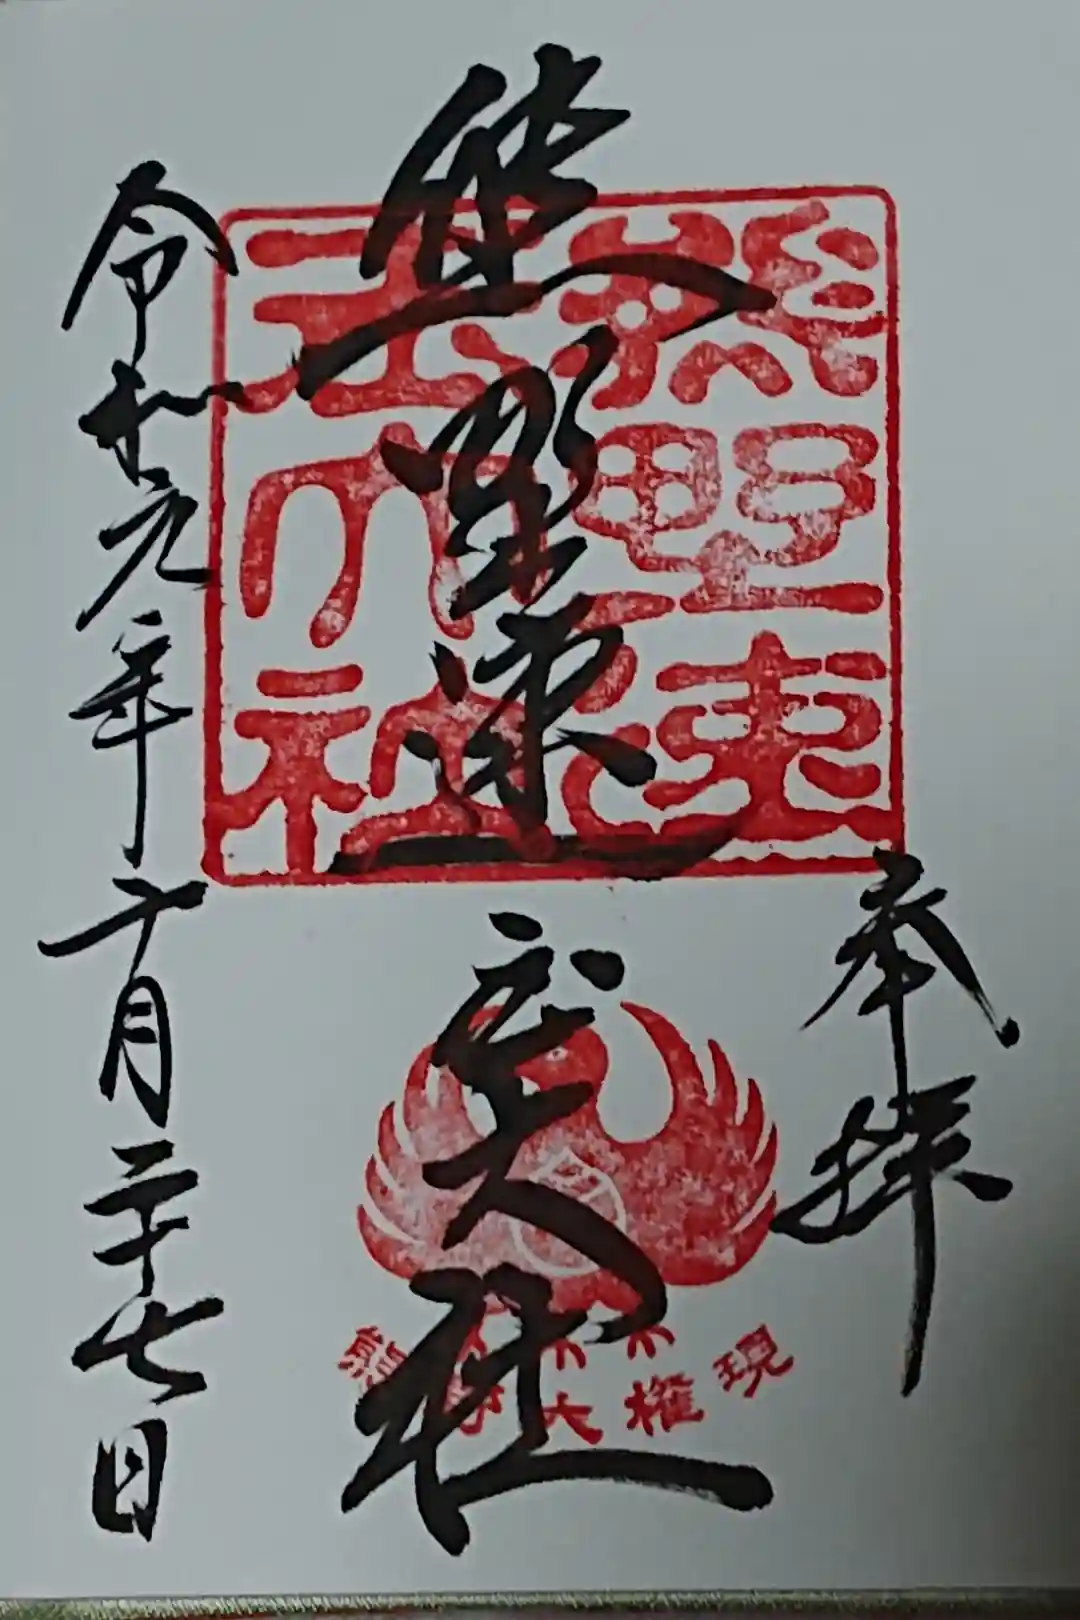 奉拝
熊野速玉大社
令和元年十月二十七日
熊野速玉大社
熊野大権現